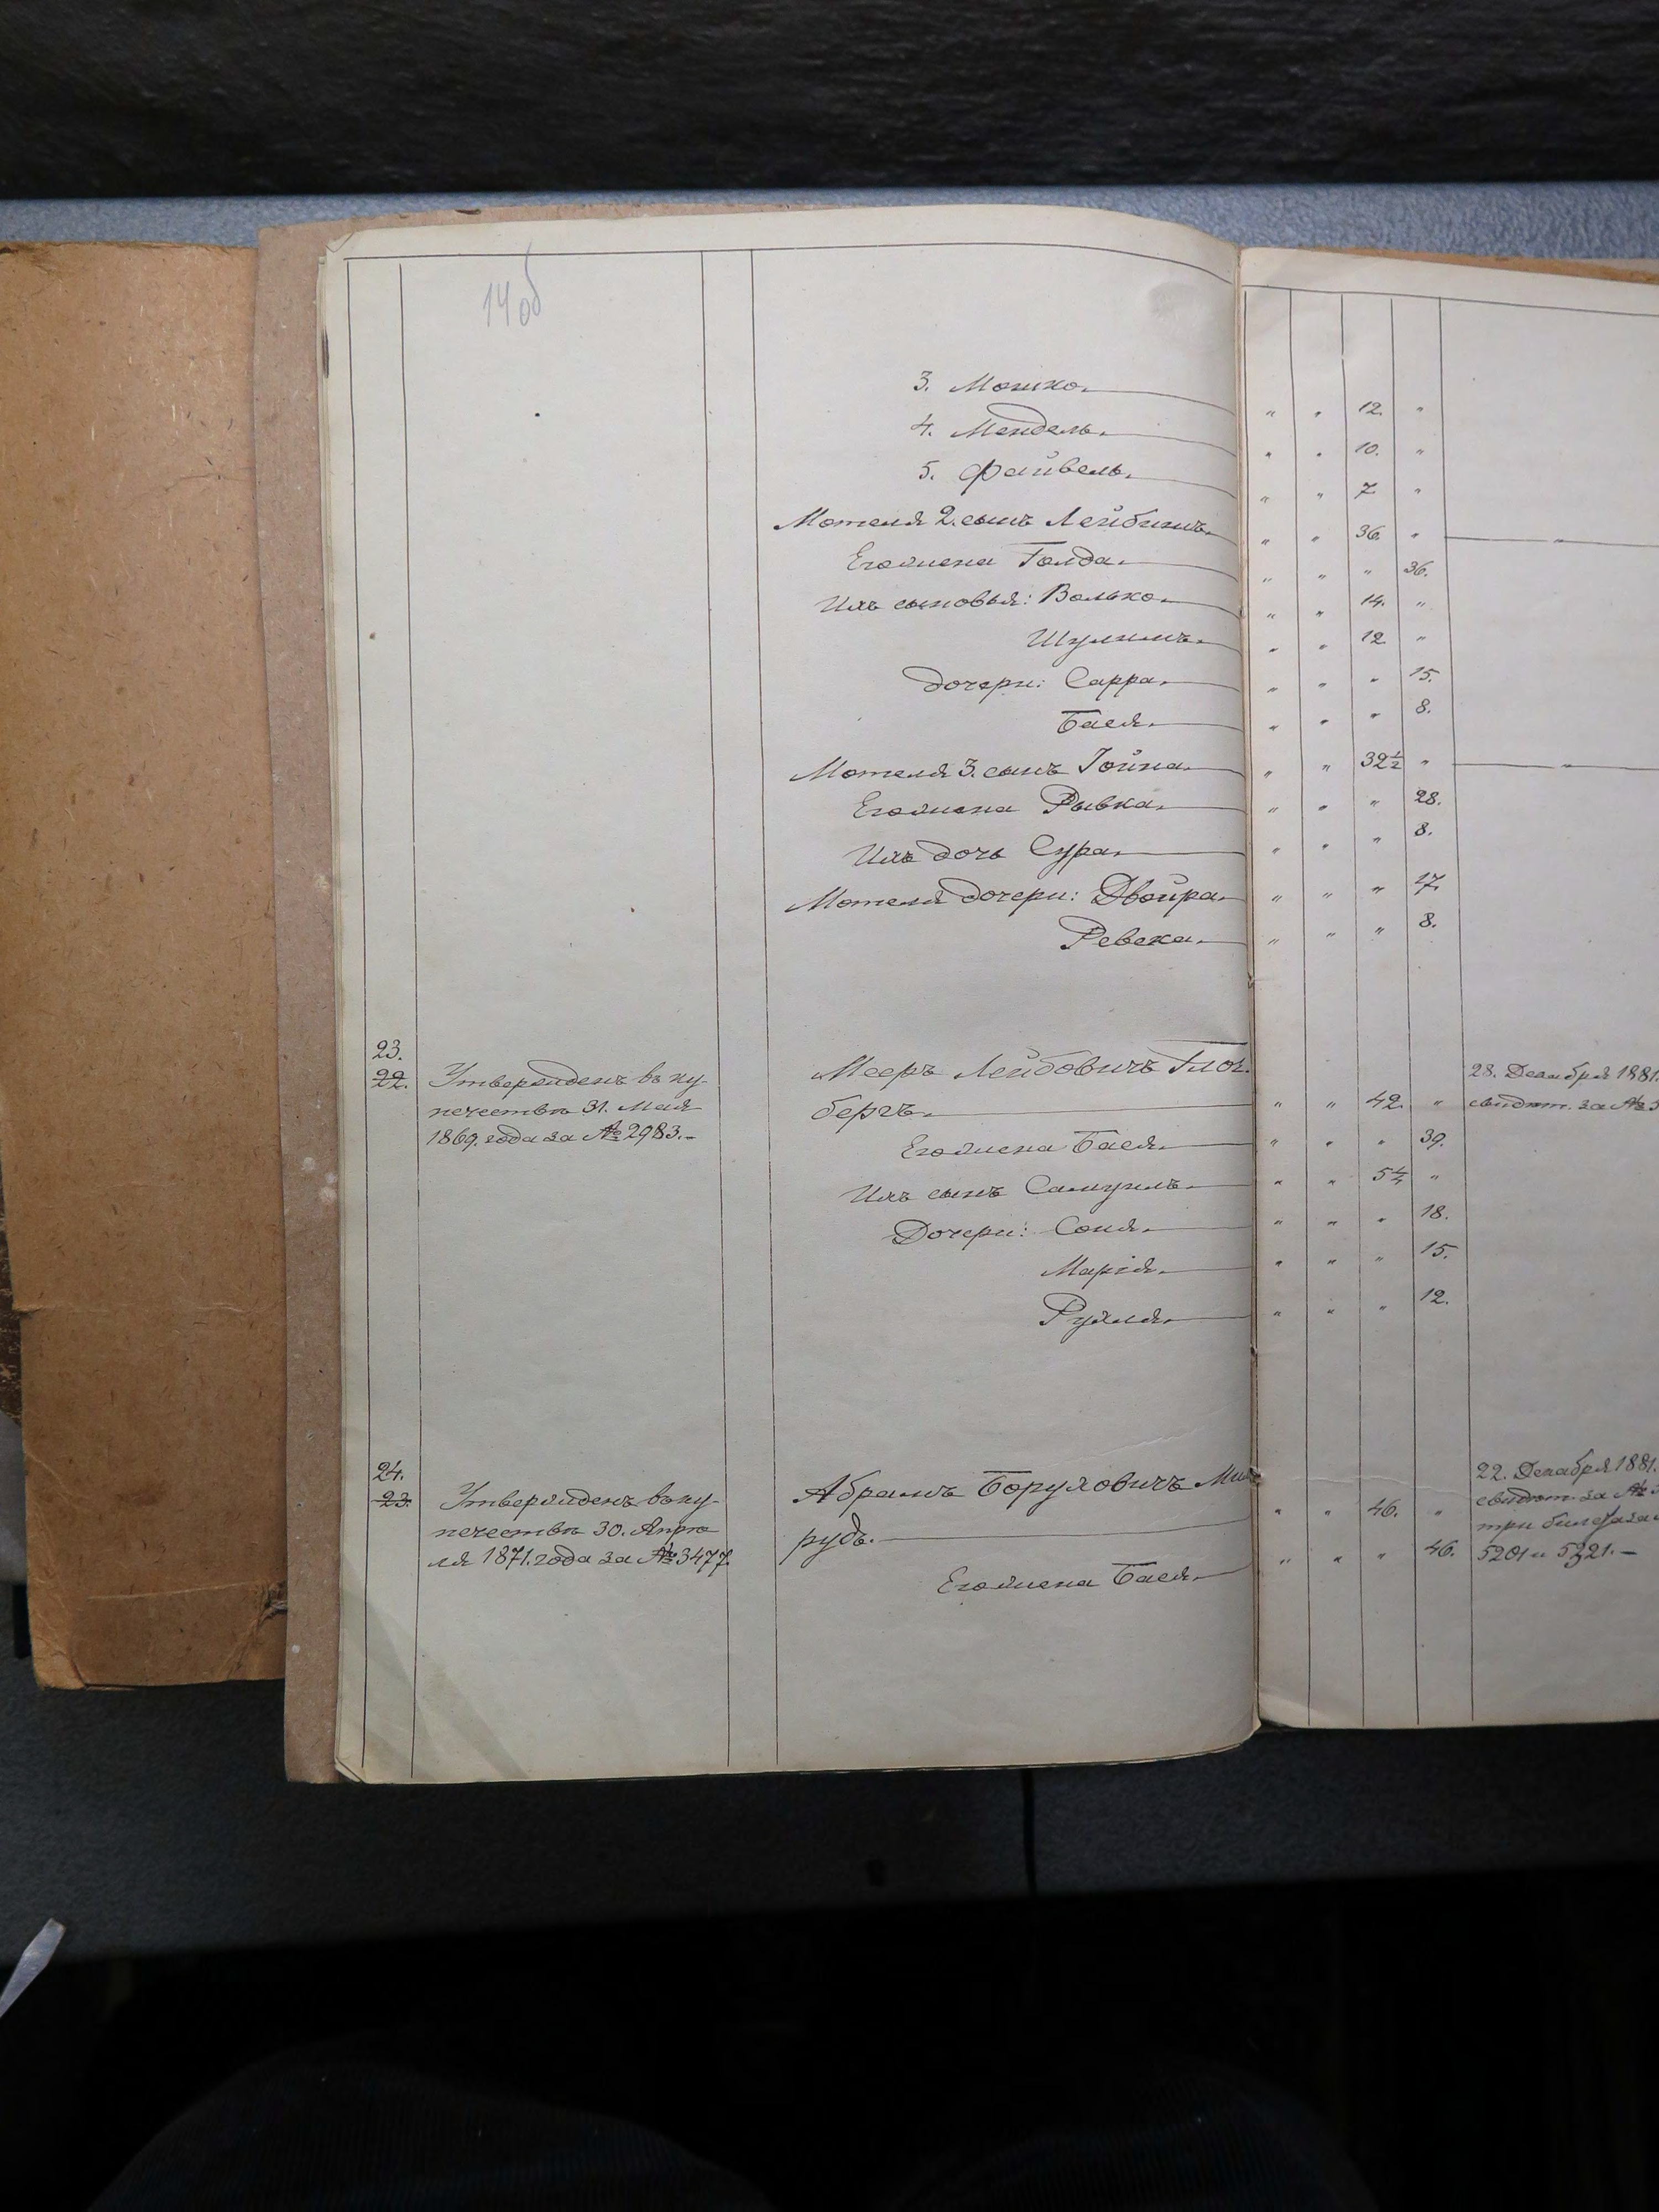 14 об
3. Мошко. " " 12. "
4. Мендель. " " 10. "
5. Файвель. " " 7. "
Мотеля 2. сынъ Лейбишъ. " " 36. "
Его жена Голда. " " " 36.
Ихъ сыновья: Волько. " " 14. "
Шулимъ. " " 12. "
дочери: Сарра. " " " 15.
Бася. " " " 8.
Мотеля 3. сынъ Іойна. " " 32½ "
Его жена Рывка. " " " 28.
Ихъ дочь Сура. " " " 8.
Мотеля дочери: Двойра. " " " 17.
Ревека. " " " 8.
23.
22. Утвержденъ въ ку- Мееръ Лейбовичъ 28. Декабря 1881.
печествѣ 31. Мая бергъ. " " 42. " свидѣт. за №
1869. года за № 2983. Его жена Бася. " " " 39.
Ихъ сынъ Самуилъ. " " 5¼ "
Дочери: Соня. " " " 18.
Марія. " " " 15.
Рухля. " " " 12.
24. 22. Декабря 1881.
23. Утвержденъ въ ку- Абрамъ Боруховичъ свидѣт. за №
печествѣ 30. Апрѣ- рудъ. " " 46. " три билета за
ля 1871. года за № 3477. Его жена Бася. " " " 46. 5201 и 5321.